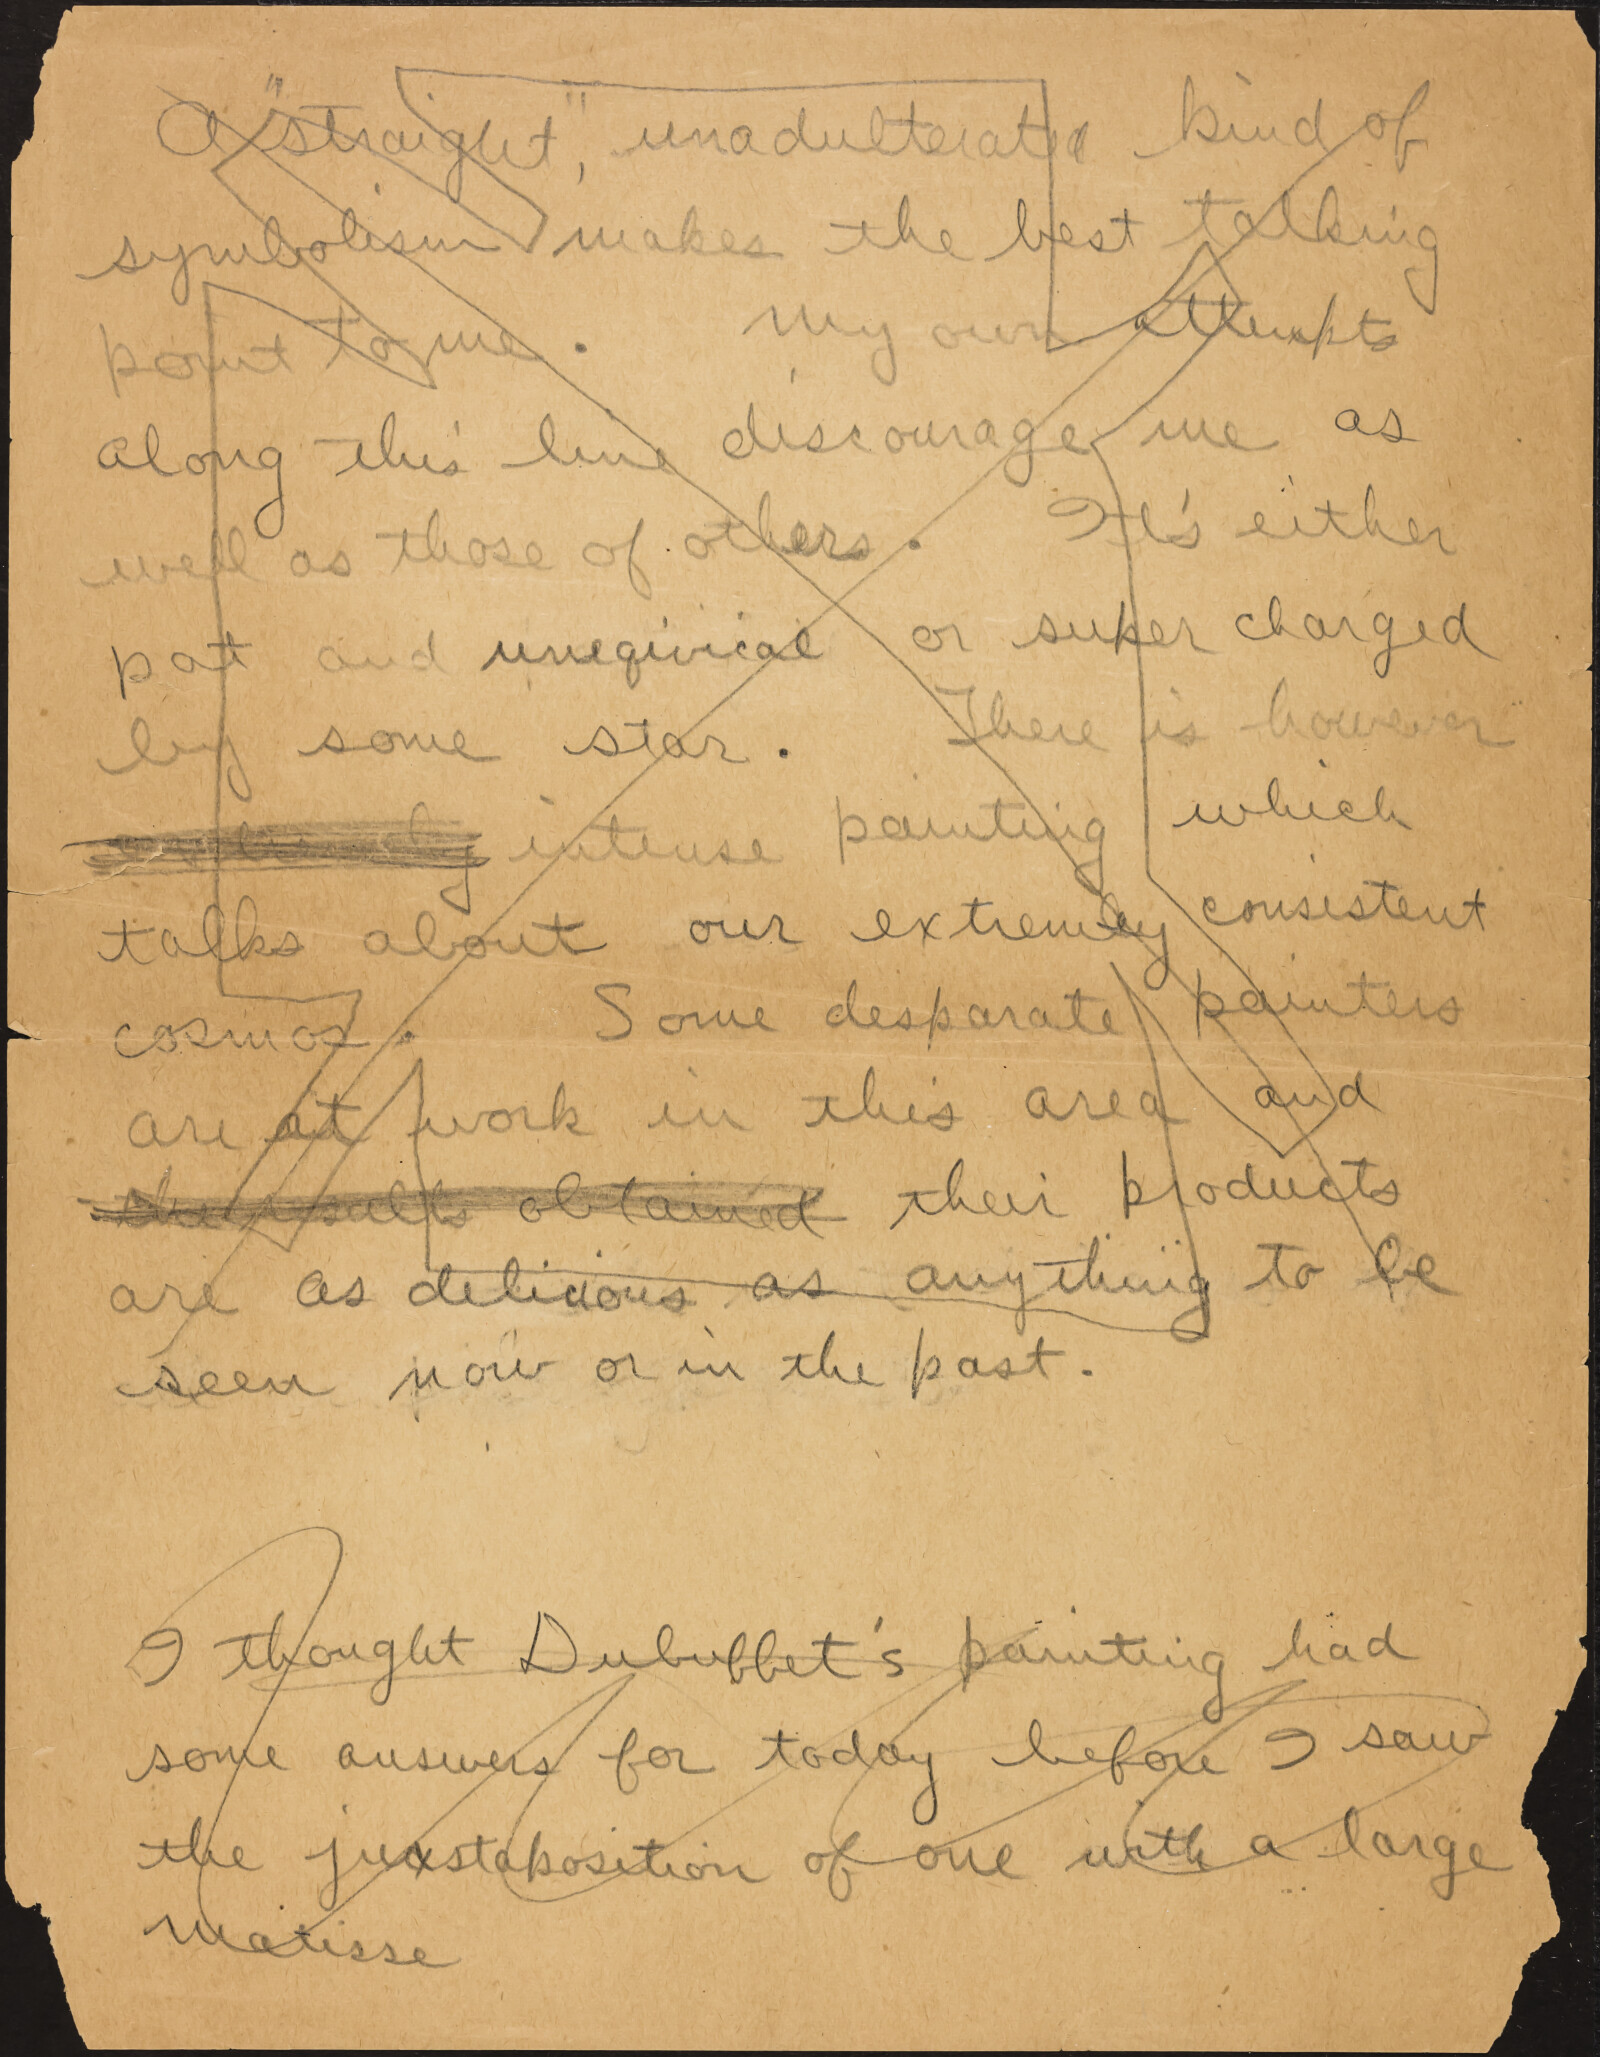 A "straight", unadulterated kind of
symbolism makes the best talking
point to me. My own attempts
along this line discourage me as
well as those of others. It's either
pat and uneqivical or super charged
by some star. There is however
extremely intense painting which
talks about our extremely consistent
cosmos. Some desparate painters
are at work in this area and
the results obtained their products
are as delicious as anything to be
seen now or in the past.
I thought Dubuffet's painting had
some answers for today before I saw
the juxstaposition of one with a large
Matisse